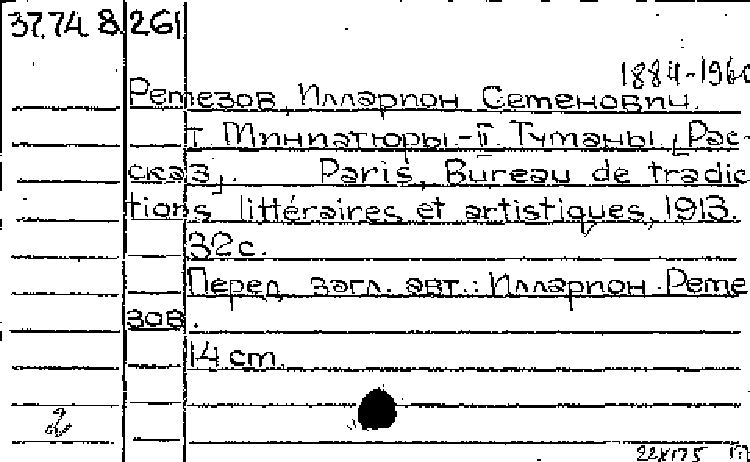 37.74 8 261
1884-1960
Ремезов, Илларион Семенович.
I Миниатюры-II Туманы. [Рас-
сказ]. Paris, Bureau de tradic
tions littéraires et artistiques, 1913.
32 с.
Перед загл. авт.: Илларион Реме
зов.
14 cm.
2